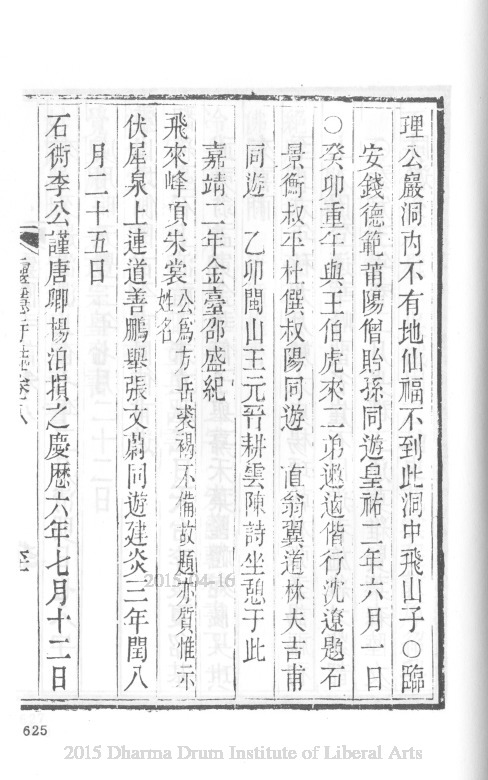 理公巖洞內不有地仙福不到此洞中飛山子○臨
安錢德範莆陽僧貽孫同遊皇祐二年六月一日
○癸卯重午與王伯虎來二弟邈逌偕行沈遼題石
景衡叔平杜僎叔陽同遊 直翁翼道林夫吉甫
同遊 乙卯閩山王元晉耕雲陳詩坐憩于此
嘉靖二年金臺邵盛紀
飛來峰項朱裳公爲方岳裘褐不備故題亦質惟示姓名
伏犀泉上連道善鵬舉張文蔚同遊建炎三年閏八
月二十五日
石衕李公謹唐卿楊洎損之慶歷六年七月十二日
2015-04-16
625
2015 Dharma Drum Institute of Liberal Arts